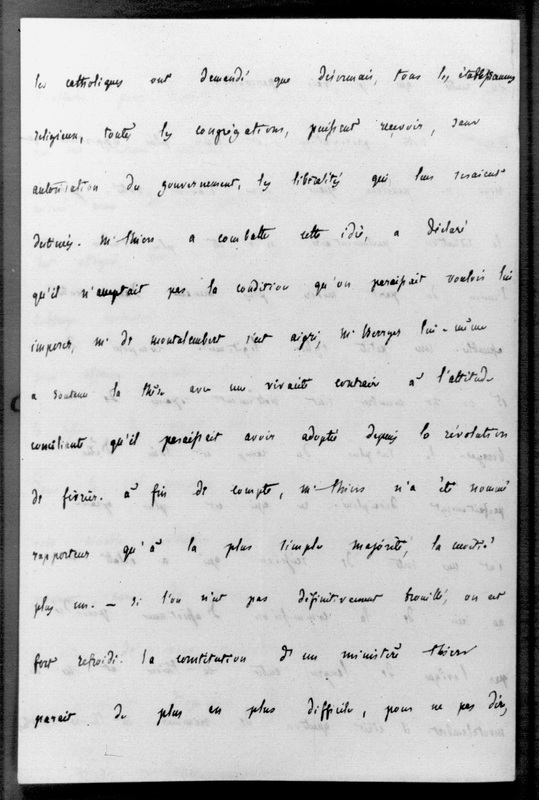 les catholiques ont demandé que désormais, tous les établissements
religieux, toutes les congrégations, puissent recevoir, sans
autorisation du gouvernement, les libéralités qui leur seraient
destinés. Mr Thiers a combattu cette idée, a déclaré
qu'il n'acceptait pas la condition qu'on paraissait vouloir lui
imposer, Mr de Montalembert s'est aigri, Mr Berryer lui-même
a soutenu la thèse avec une vivacité contraire à l'attitude
conciliante qu'il paraissait avoir adoptée depuis la révolution
de février. à fin de compte, Mr Thiers n'a été nommé
rapporteur qu'à la plus simple majorité, la moitié
plus un. — si l'on n'est pas définitivement brouillé, on est
fort refroidi. la constitution d'un ministère Thiers
parait de plus en plus difficile, pour ne pas dire,